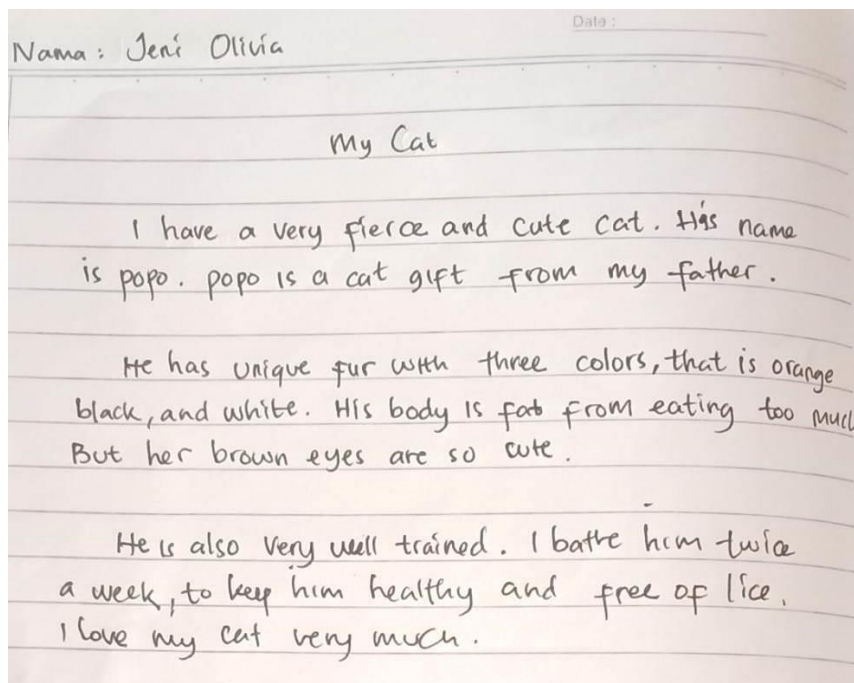 Date :
Nama : Jeni Olivia
My Cat
I have a very fierce and cute cat. His name
is popo. popo is a cat gift from my father.
He has unique fur with three colors, that is orange
black, and white. His body is fat from eating too much
But her brown eyes are so cute.
He is also very well trained. I bathe him twice
a week, to keep him healthy and free of lice.
I love my cat very much.